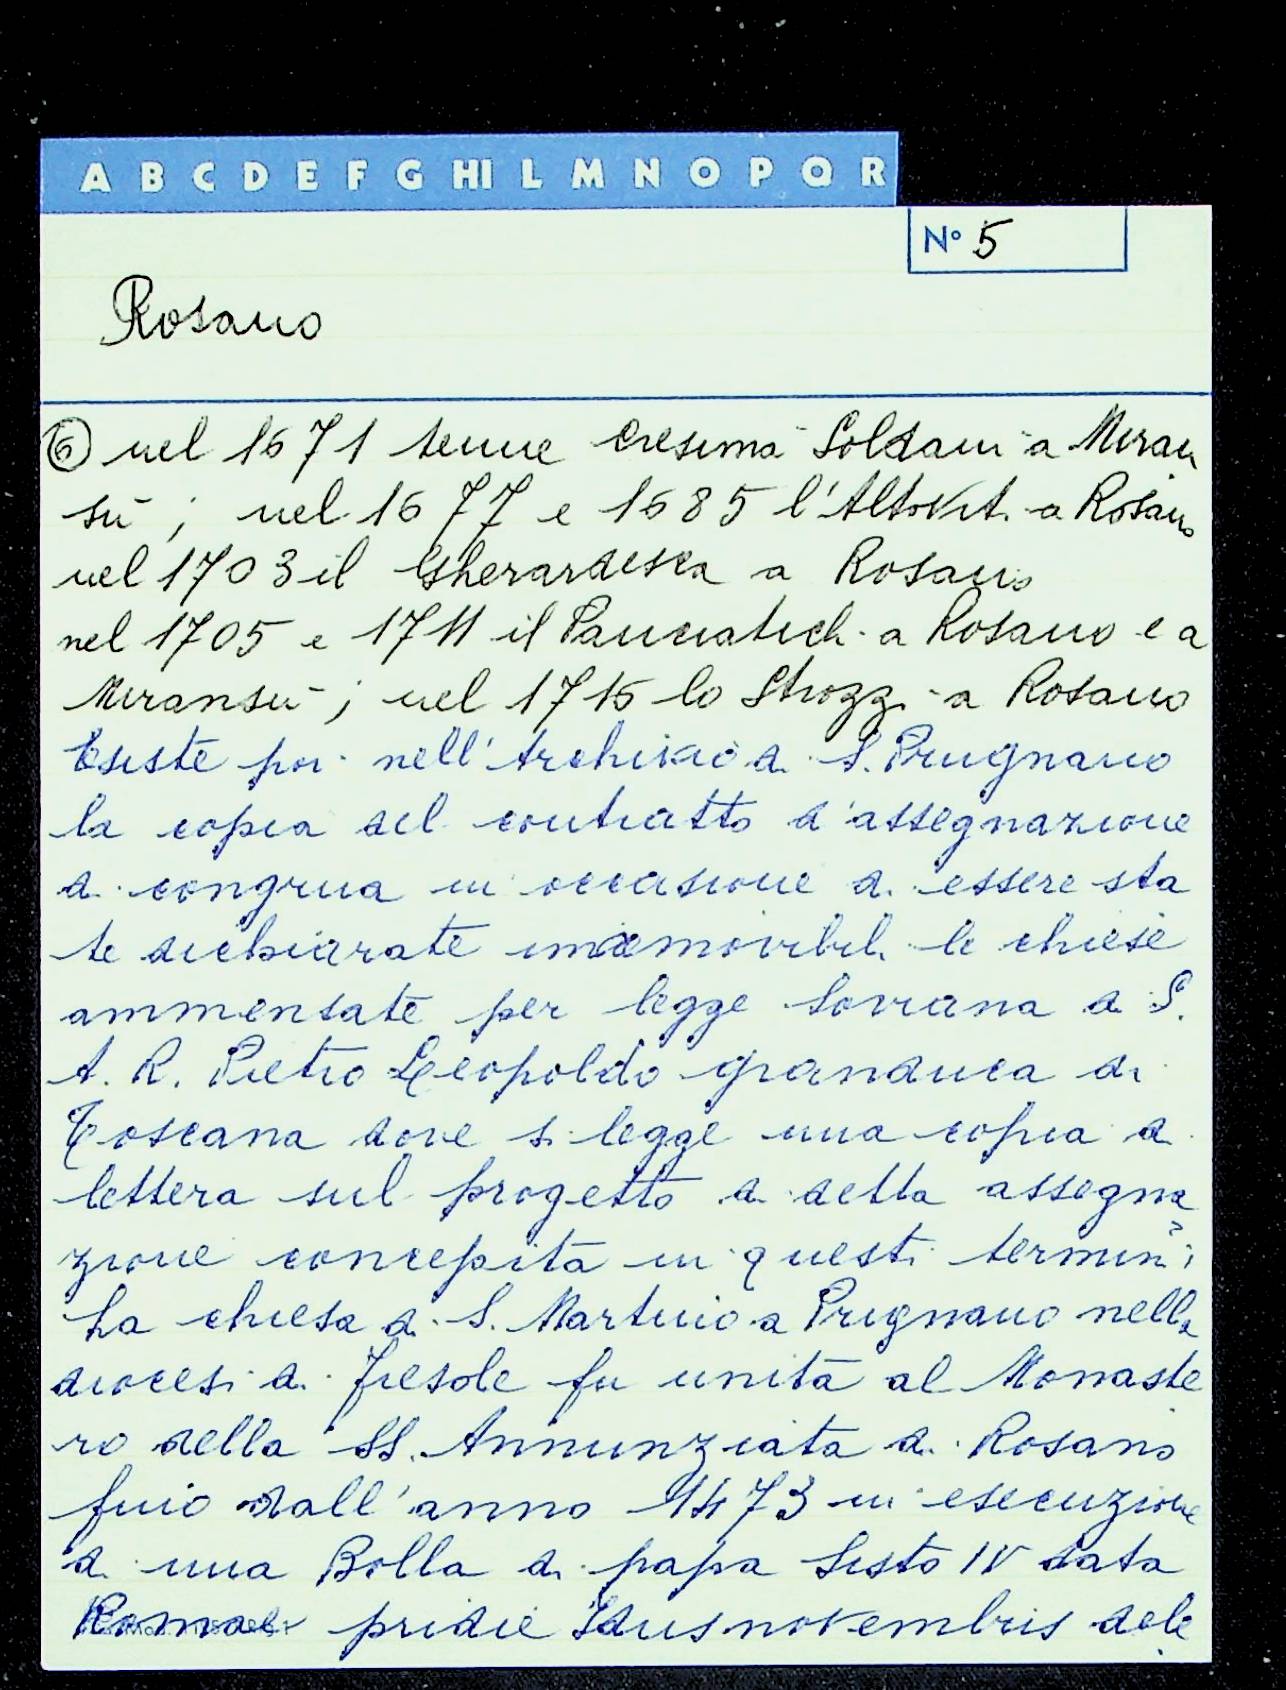 A B C D E F G HI L M N O P Q R
N° 5
Rosano
⑥ nel 1671 tenne Cresima Soldani a Miran
sù ; nel 1677 e 1685 l'Altovit. a Rosano
nel 1703 il Gherardesca a Rosano
nel 1705 e 1711 il Panciatich. a Rosano e a
Miransù ; nel 1716 lo Strozzi a Rosano
Esiste poi nell'Archivio di S. Prugnano
la copia del contratto d'assegnazione
di congrua in occasione di essere sta
te dichiarate inamovibili le chiese
ammensate per legge sovrana di S.
A. R. Pietro Leopoldo granduca di
Toscana dove si legge una copia di
lettera sul progetto di detta assegna
zione concepita in questi termini:
La chiesa di S. Martino a Prugnano nella
diocesi di Fiesole fu unita al Monaste
ro della SS. Annunziata di Rosano
fino dall'anno 1473 in esecuzione
di una Bolla di papa Sisto IV data
Romae pridie Idus novembris del